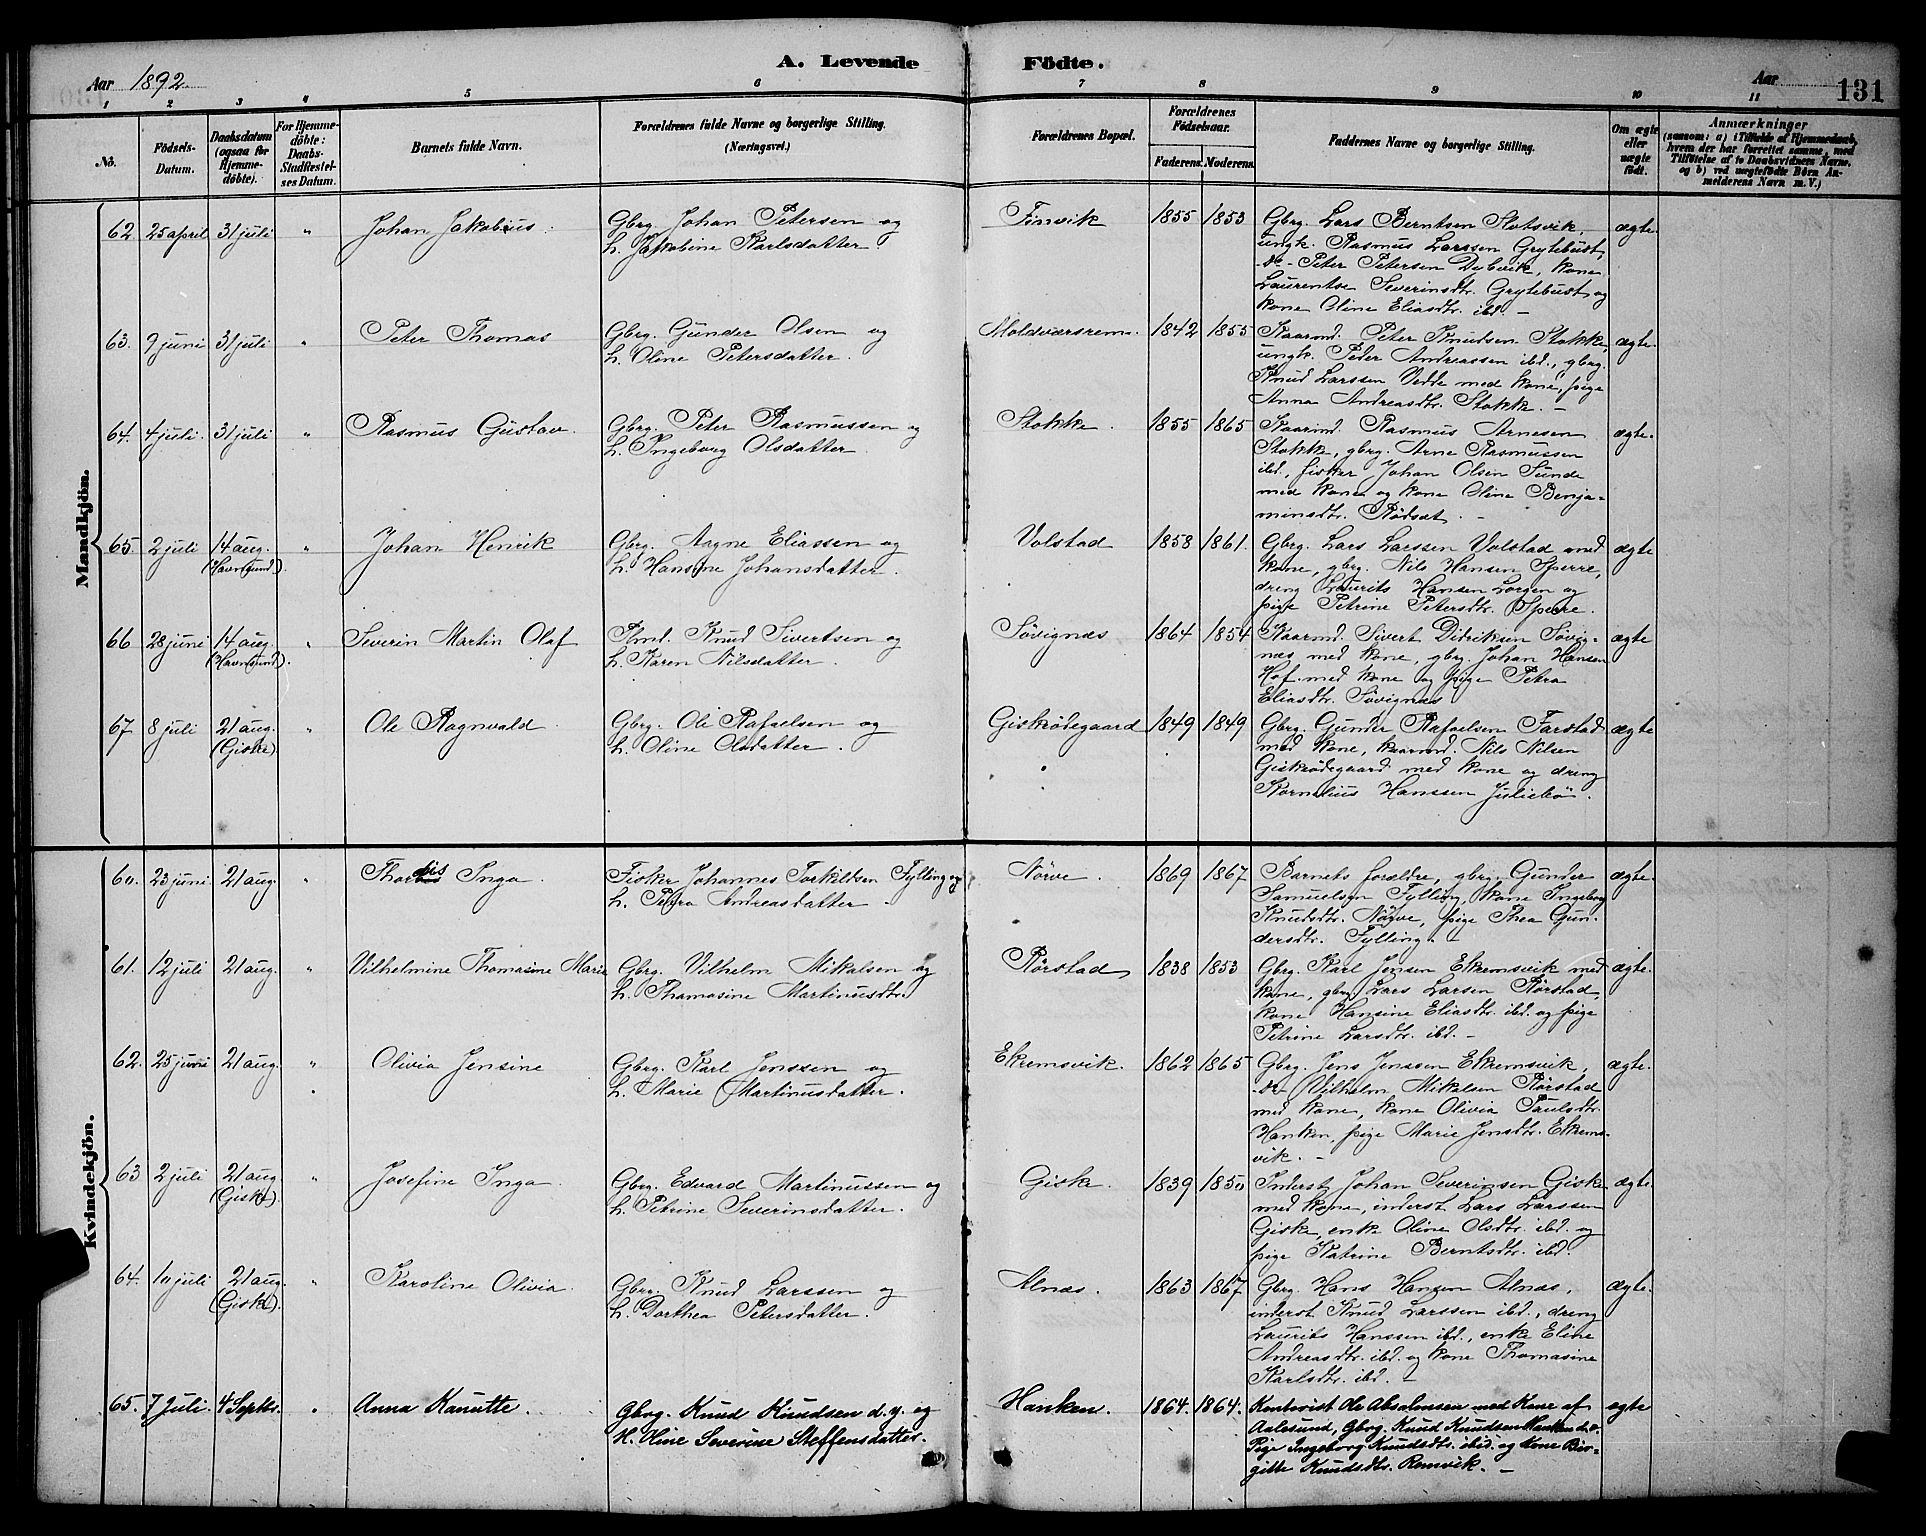 A. Levende Födte.
Aar 1892
Aar
131
1 2 3 4 5 6 7 8 9 10 11
No.
Födsels-Datum.
Daabsdatum (ogsaa for Hjemmedöbte).
For Hjemmedöbte: Daabs-Stadfestelses Datum.
Barnets fulde Navn.
Forældrenes fulde Navne og borgerlige Stilling. (Næringsvei.)
Forældrenes Bopæl.
Forældrenes Födselsaar.
Faderens. Moderens.
Faddernes Navne og borgerlige Stilling.
Om ægte eller uægte födt.
Anmærkninger
(saasom: a) i Tilfælde af Hjemmedaab, hvem der har forrettet samme, med Tilföielse af to Daabsvidners Navne, og b) ved uægtefödte Börn Anmelderens Navn m. V.)
Mandkjön.
62 25 april 31 juli " Johan Jakobius. Gbrg. Johan Petersen og
h. Jakobine Karlsdatter Finvik 1855 1853 Gbrg. Lars Berntsen Slotsvik,
ungk. Rasmus Larssen Grytebust,
-do- Peter Petersen Dybvik, kone
Laurentse Severinsdtr. Grytebust og
kone Oline Eliasdtr. ibd. - ægte.
63. 9 juni 31 juli " Peter Thomas Gbrg. Gunder Olsen og
h. Oline Petersdatter. Moldværsrem. 1842 1855 Kaarmd. Peter Knudsen Stokke,
ungk. Peder Andreassen ibd., gbrg.
Knud Larssen Vedde med kone, pige
Anna Andreasdtr. Stokke. - ægte.
64. 4 juli. 31 juli " Rasmus Gustav. Gbrg. Peter Rasmussen og
h. Ingeborg Olsdatter. Stokke. 1855 1865 Kaarmd. Rasmus Arnesen
Stokke, gbrg. Arne Rasmussen
ibd., fisker Johan Olsen Sunde
med kone og kone Oline Benja-
minsdtr. Rödset. - ægte.
65. 2 juli 14 aug. (Havnsund). " Johan Henrik Gbrg. Aagne Eliassen og
h. Hansine Johansdatter. Volstad 1858 1861. Gbrg. Lars Larssen Volstad med
kone, gbrg. Nils Hansen Sperre,
dreng Laurits Hansen Lorgen og
pige Petrine Petersdtr. Sperre. ægte
66 28 juni 14 aug. (Havnsund). " Severin Martin Olaf Knud Sivertsen og
h. Karen Nilsdatter. Sövignæs 1864 1854 Kaarmd. Sivert Didriksen Sövig-
næs med kone, gbrg. Johan Hansen
Hof med kone og pige Petra
Eliasdtr. Sövignæs ægte
67 8 juli 21 aug. (Giske) " Ole Ragnvald Gbrg. Ole Rafaelsen og
h. Oline Olsdatter. Giskeödegaard 1849 1849 Gbrg. Gunder Rafaelsen Farstad
med kone, kaarmd. Nils Nilsen
Giskeödegaard med kone og dreng
Kornelius Hanssen Juliebö. ægte
Kvindekjön.
60. 23 juni 21 aug. " Thordis Inga Fisker Johannes Torkildsen Fylling og
h. Petra Andreasdatter. Nörve. 1869 1867 Barnets forældre, gbrg. Gunder
Samuelsen Fylling, kone Ingeborg
Knudsdtr. Nörve, pige Thea Gun-
dersdtr. Fylling. - ægte.
61. 12 juli 21 aug. " Vilhelmine Thomasine Marie Gbrg. Vilhelm Mikalsen og
h. Thomasine Martinusdtr. Rörstad 1838 1853 Gbrg. Karl Jensen Ekremsvik med
kone, gbrg. Lars Larsen Rörstad,
kone Hansine Eliasdtr. ibd. og pige
Petrine Larsdtr. ibd. - ægte.
62. 25 juni 21 aug. " Olivia Jensine Gbrg. Karl Jenssen og
h. Marie Martinusdatter. Ekremsvik. 1862 1865 Gbrg. Jens Jenssen Ekremsvik,
-do- Vilhelm Mikalsen Rörstad
med kone, kone Olivia Paulsdtr.
Hanken, pige Marie Jensdtr. Ekrems-
vik. - ægte.
63 2 juli 21 aug. (Giske). " Josefine Inga. Gbrg. Edvard Martinussen og
h. Petrine Severinsdatter. Giske. 1839 1850 Inderst Johan Severinsen Giske
med kone, inderst Lars Larssen
Giske, enke Oline Olsdtr. ibd. og
pige Katrine Berntsdtr. ibd. ægte.
64. 10 juli 21 aug. (Giske). " Karoline Olivia. Gbrg. Knud Larssen og
h. Dorthea Petersdatter. Alnæs. 1863 1867 Gbrg. Hans Hansen Alnæs,
inderst Knud Larssen ibd., dreng
Laurits Hanssen ibd., enke Eline
Andreasdtr. ibd. og kone Thomasine
Karlsdtr. ibd. - ægte.
65. 7 Juli. 4 Septbr. " Anna Kanutte. Gbrg. Knud Knudsen d.y. og
H. Oline Severine Steffensdatter. Hanken. 1864. 1864. Kontorist Ole Absalonsen med Kone af
Aalesund, Gbrg. Knud Knudsen Hanken d.e.
Pige Ingeborg Knudsdtr. ibid. og Kone Bir-
gitte Knudsdtr. Remvik. - egte